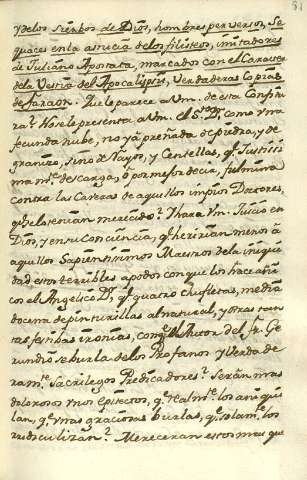 81
y de los siervos de Dios, hombres perversos, Se
quaces en la astucia de los filisteos, imitadores
de Juliano Apostata, marcados con el Caracter
de la Vestia del Apocalipsis, Verdaderas Copias
de faraon. Que le parece a Vm. de esta Confitu
ra? No se le presenta a Vm. el Sto Dr. como vna
fecunda nube, no ya preñada de piedra, y de
granizo, sino de Rayos, y Centellas, q.e Justissi
mam.te descarga, ò por mejor decir, fulmina
contra las Cavezas de aquellos impios Doctores,
q.e lo tenian merecido? Y hará Vm. Juicio en
Dios, y en su Conciencia, q.e herirían menos à
aquellos Sapientissimos Maestros de la iniqui
dad estos terribles apodos con que los hace añi
cos el Angelico Dr, q.e quatro chufletas, media
docena de pinturillas al natural, y otras tan
tas festibas ironias, con q.e el Autor del fr. Ge
rundio se burla de los Profanos y Verdade
ram.te Sacrilegos Predicadores? Serán mas
dolorosos vnos epitectos, q.e realm.te los aniqui
lan, q.e vnas graciosas burlas, q.e solam.te los
ridiculizan? Mereceran estos mas que